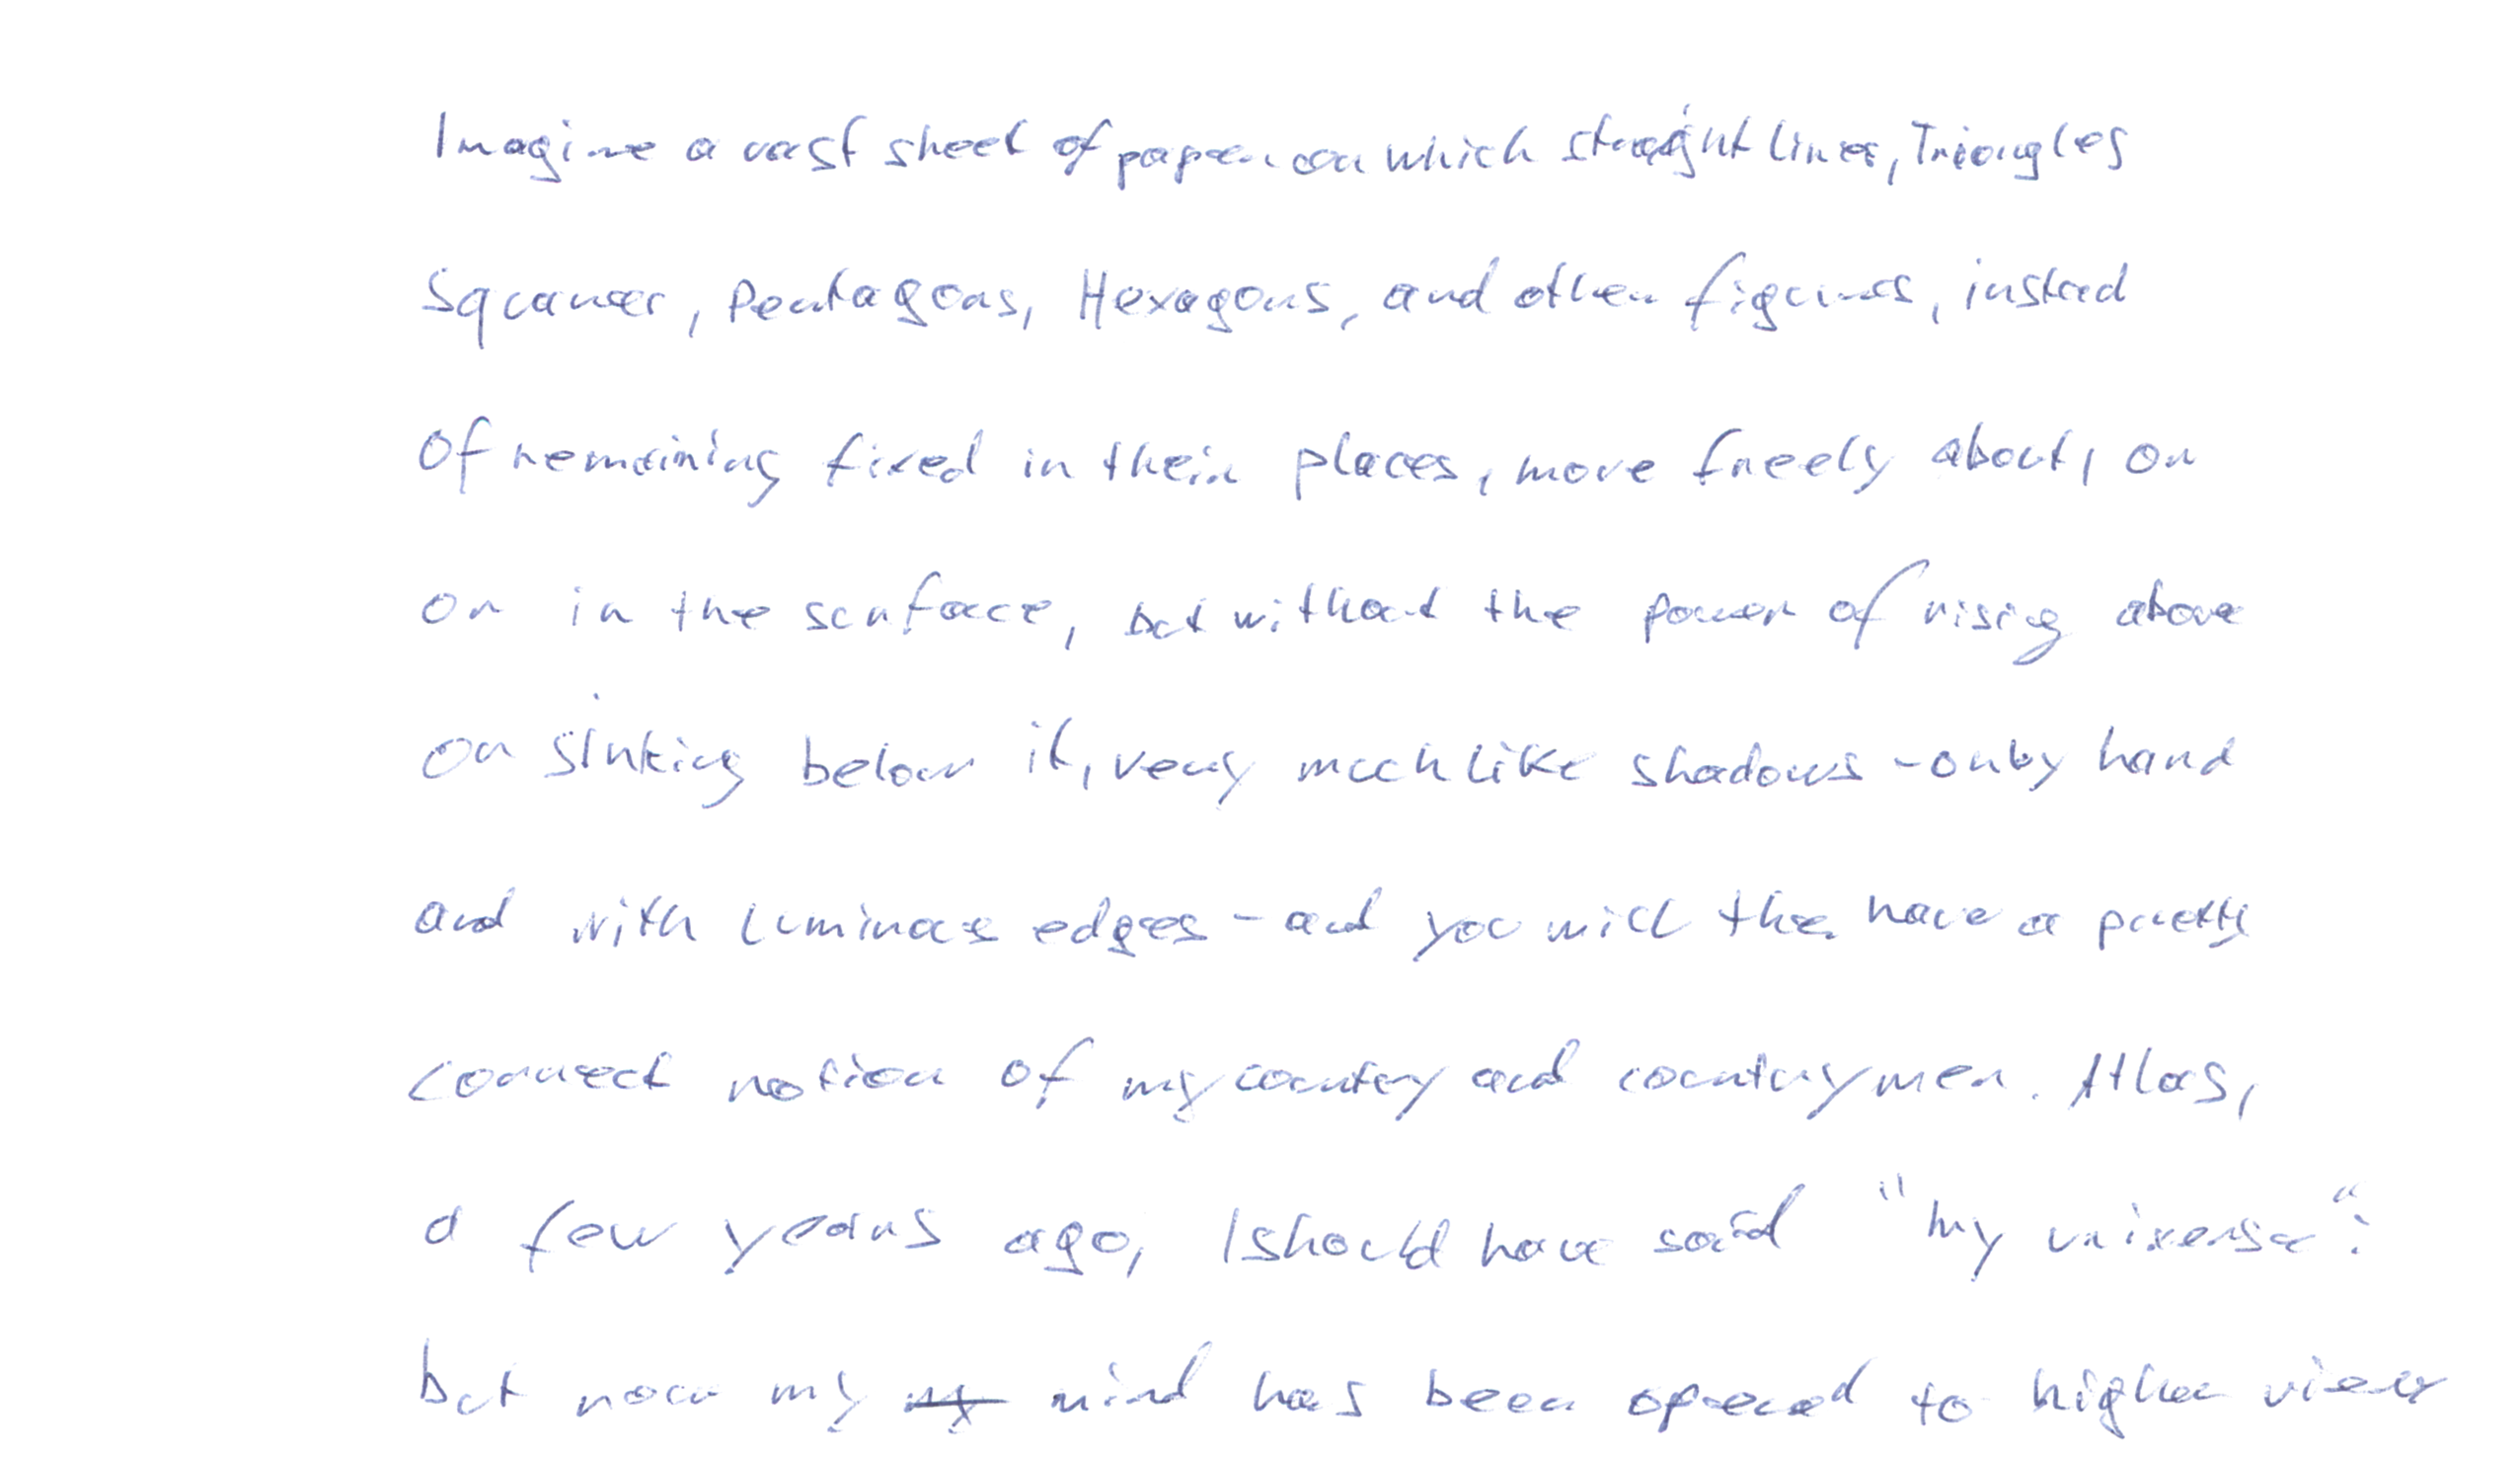 Imagine a vast sheet of paper on which straight lines, Triangles
Squares, Pentagons, Hexagons, and other figures, instead
of remaining fixed in their places, move freely about, on
or in the surface, but without the power of rising above
or sinking below it, very much like shadows - only hard
and with luminous edges - and you will then have a pretty
correct notion of my country and countrymen. Atlas,
a few years ago, I should have said "my universe":
but now my my mind has been opened to higher views